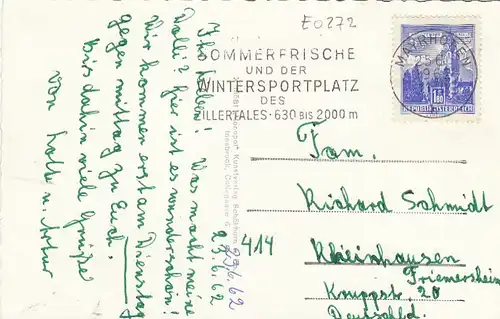 E0272
SOMMERFRISCHE
UND DER
WINTERSPORTPLATZ
DES
ZILLERTALES · 630 BIS 2000 m
MAYRHOFEN
REPUBLIK ÖSTERREICH
Ihr Lieben! Was macht meine
Dolli? Hier ist es wunderschön!
Wir kommen erst am Dienstag
gegen mittag zu Euch.
Bis dahin viele Grüße
von Lott u. Artur
23.6.62
29/6.62
414
Fam.
Richard Schmidt
Rheinhausen
Friemersheim
Kruppstr. 20
Deutschld.